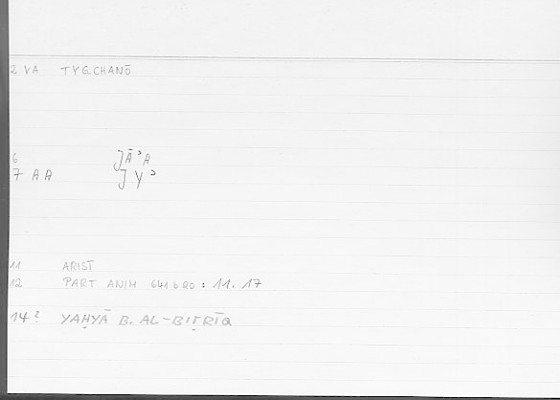 2 VA TYGCHANŌ
6 JĀʾA
7 AA JYʾ
11 ARIST
12 PART ANIM 641 b 20 : 11. 17
14? YAḤYĀ B. AL-BIṬRĪQ